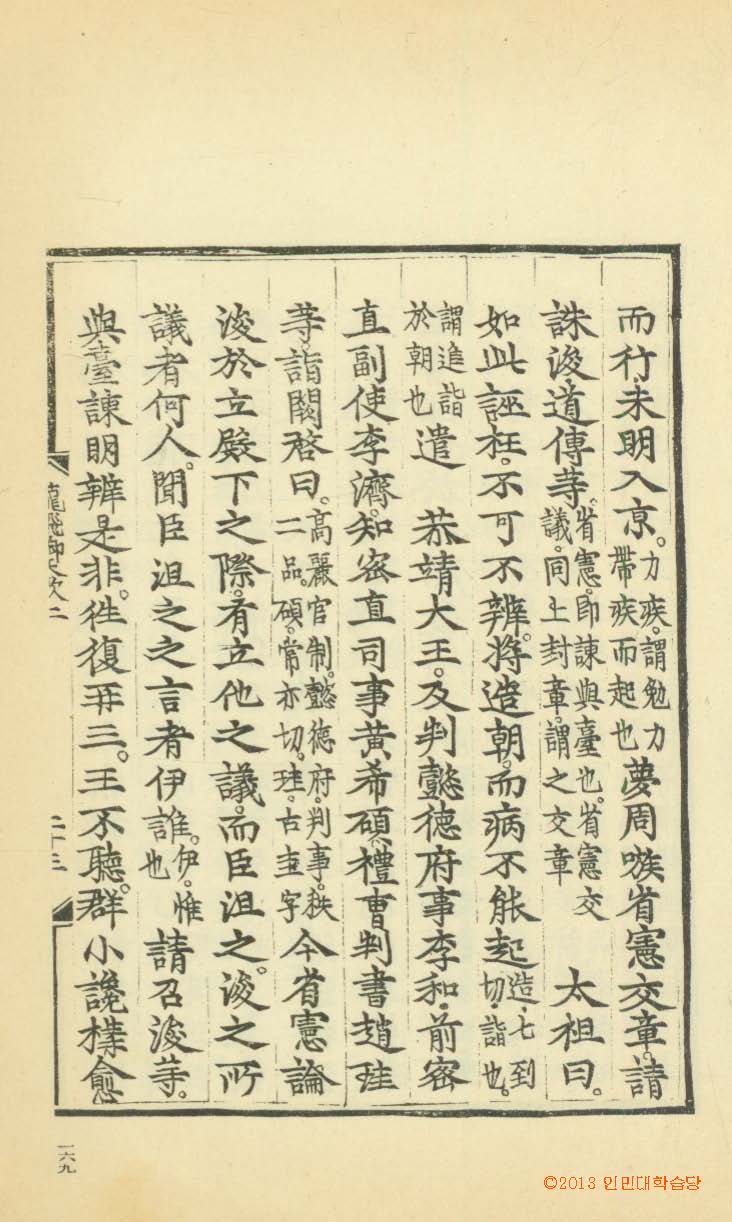 而行。未明入京。力疾。謂勉力帶疾而起也夢周嗾省憲交章。請
誅浚道傳等。省憲。卽諫與臺也。省憲交議。同上封章。謂之交章太祖曰。
如此誣枉。不可不辨。將造朝。而病不能起造。七到切。詣也。
謂進詣於朝也遣 恭靖大王。及判懿德府事李和。前密
直副使李濟。知密直司事黃希碩。禮曹判書趙珪
等。詣闕啓曰。高麗官制。懿德府。判事。秩二品。碩。常亦切。珪。古圭字今省憲論
浚於立殿下之際。有立他之議。而臣沮之。浚之所
議者何人。聞臣沮之之言者伊誰。伊。惟也請召浚等。
與臺諫明辨是非。徃復再三。王不聽。群小讒構愈
龍飛御天歌 二十三
一六九
©2013 인민대학습당